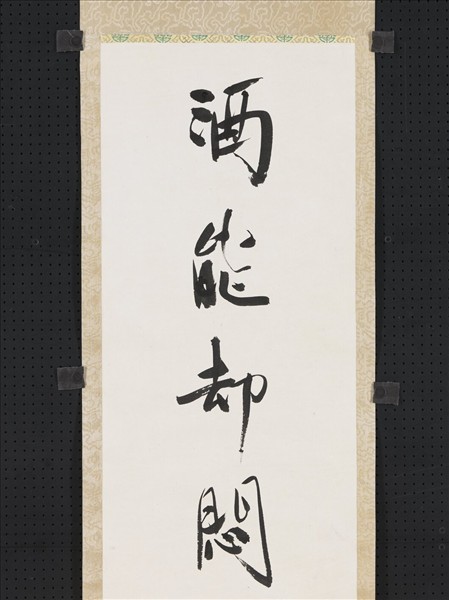 酒能却悶